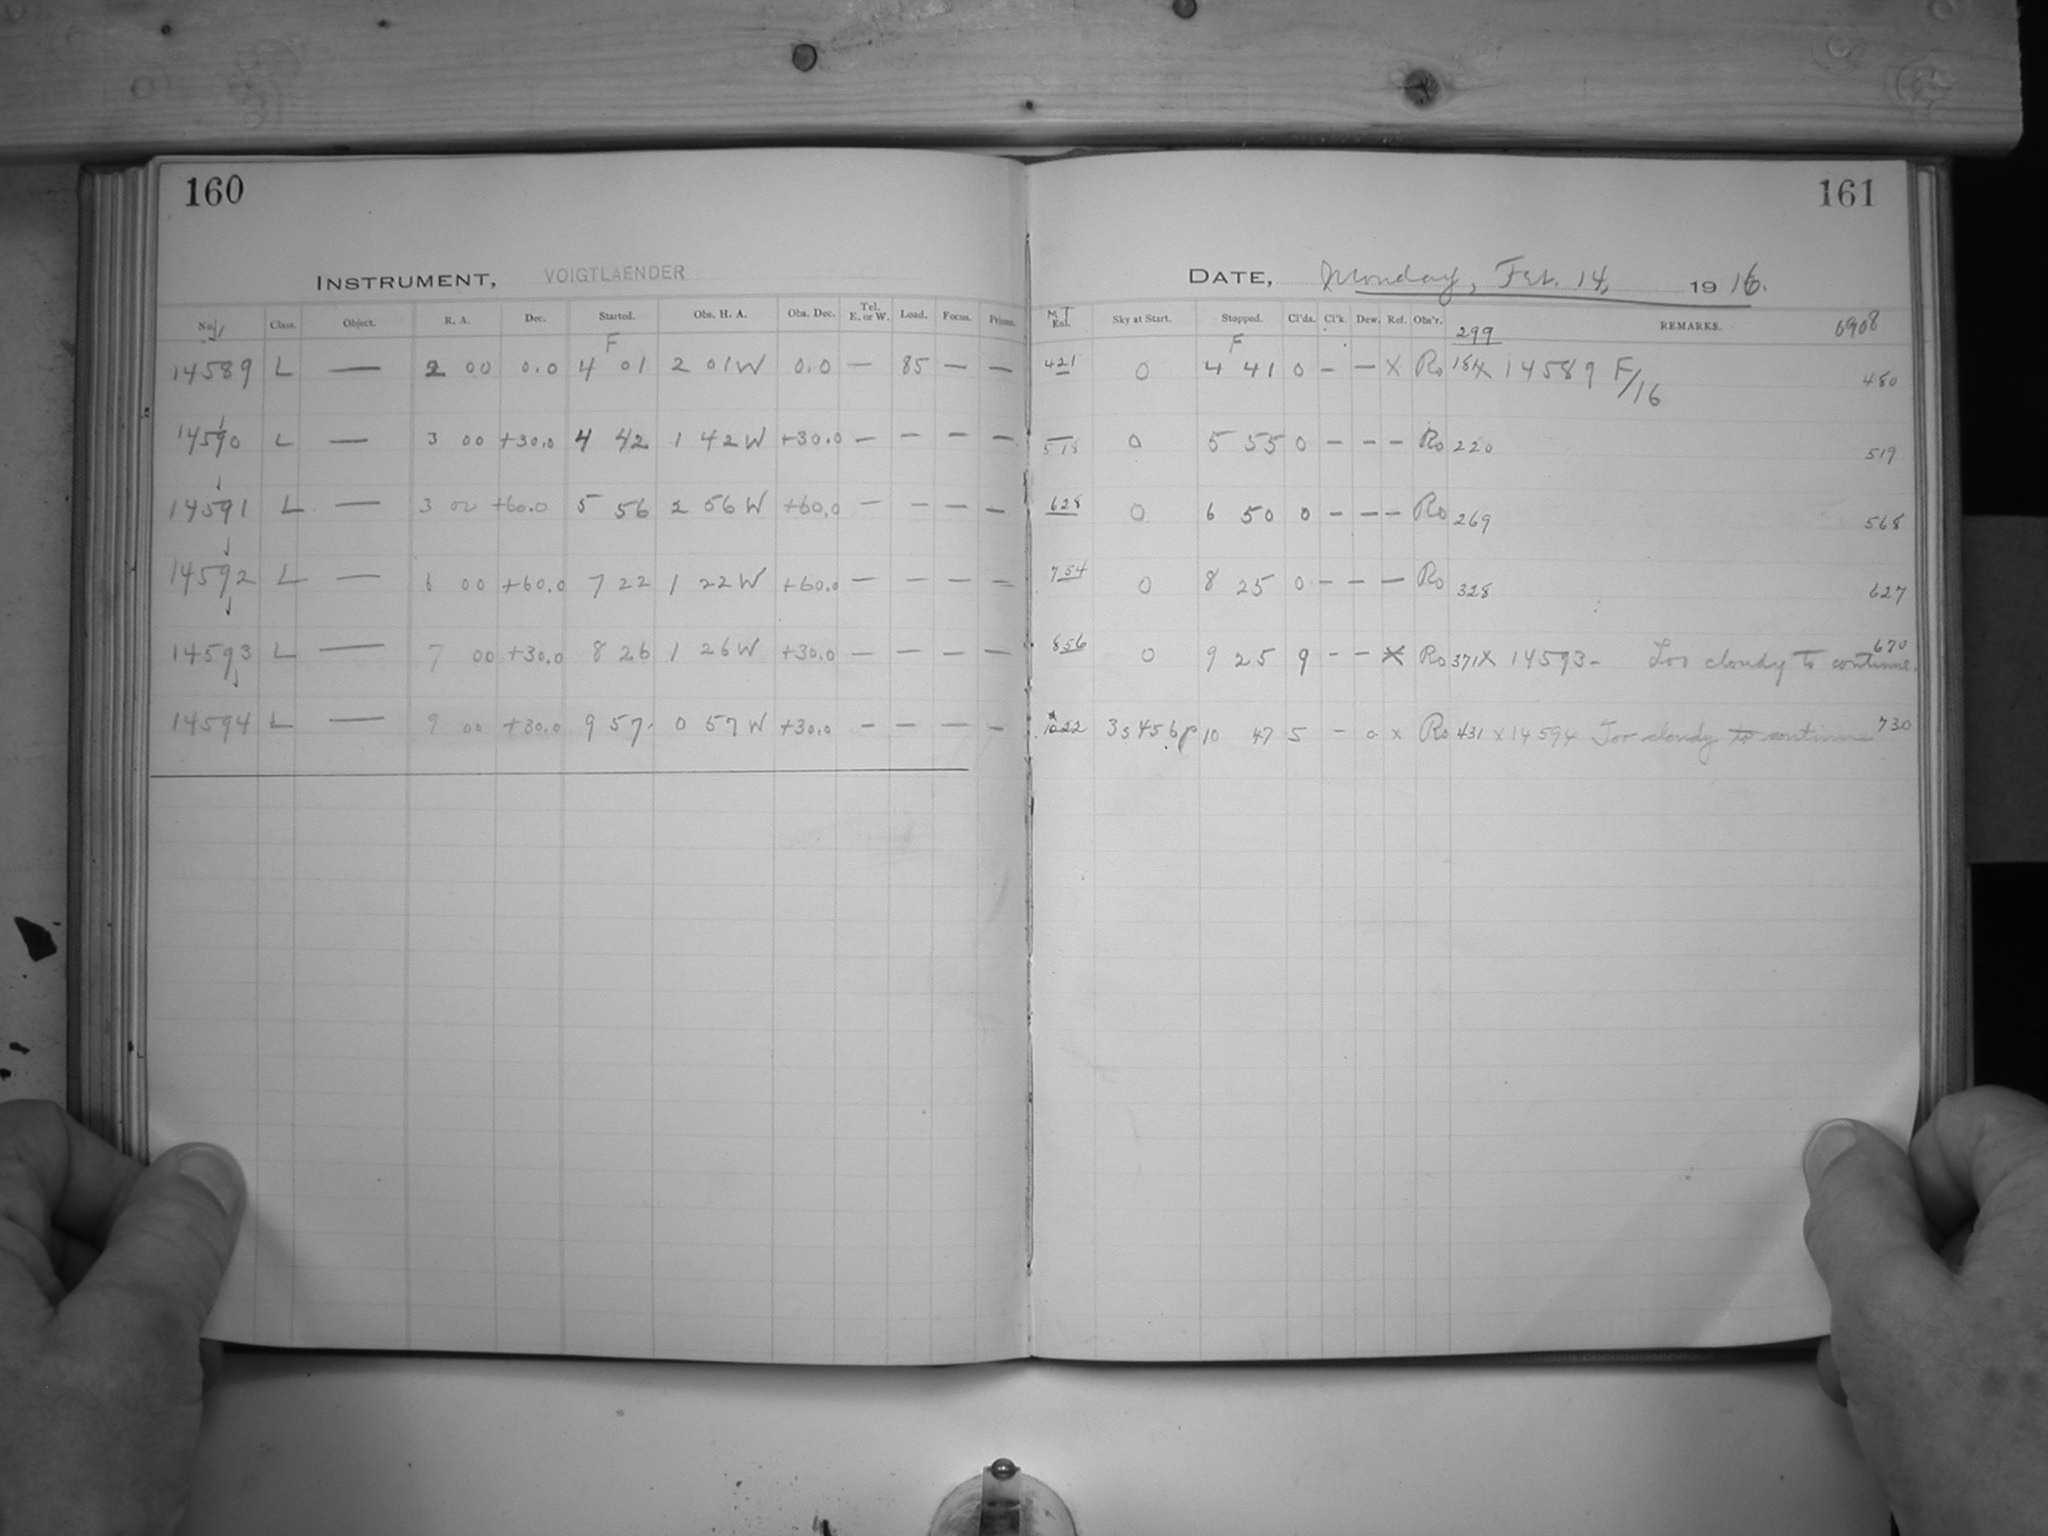 160
INSTRUMENT, VOIGTLAENDER
No. Class. Object. R. A. Dec. Started. Obs. H. A. Obs. Dec. Tel. E. or W. Load. Focus. Prisms.
F
14589 L — 2 00 0.0 4 01 2 01 W 0.0 — 85 — —
14590 L — 3 00 +30.0 4 42 1 42 W +30.0 — — — —
14591 L — 3 00 +60.0 5 56 2 56 W +60.0 — — — —
14592 L — 6 00 +60.0 7 22 1 22 W +60.0 — — — —
14593 L — 7 00 +30.0 8 26 1 26 W +30.0 — — — —
14594 L — 9 00 +30.0 9 57 0 57 W +30.0 — — — —
161
DATE, Monday, Feb. 14, 1916.
M T
Sky at Start. Stopped. Cl'ds. Cl'k. Dew. Ref. Obs'r. REMARKS. 6908
F 299
421 0 4 41 0 – – X Ro 184 X 14589 F/16 480
518 0 5 55 0 – – – Ro 220 519
628 0 6 50 0 – – – Ro 269 568
754 0 8 25 0 – – – Ro 328 627
856 0 9 25 9 – – X Ro 371 X 14593 – Too cloudy to continue. 670
1022 3s 456p 10 47 5 – 0 x Ro 431 x 14594 Too cloudy to continue 730